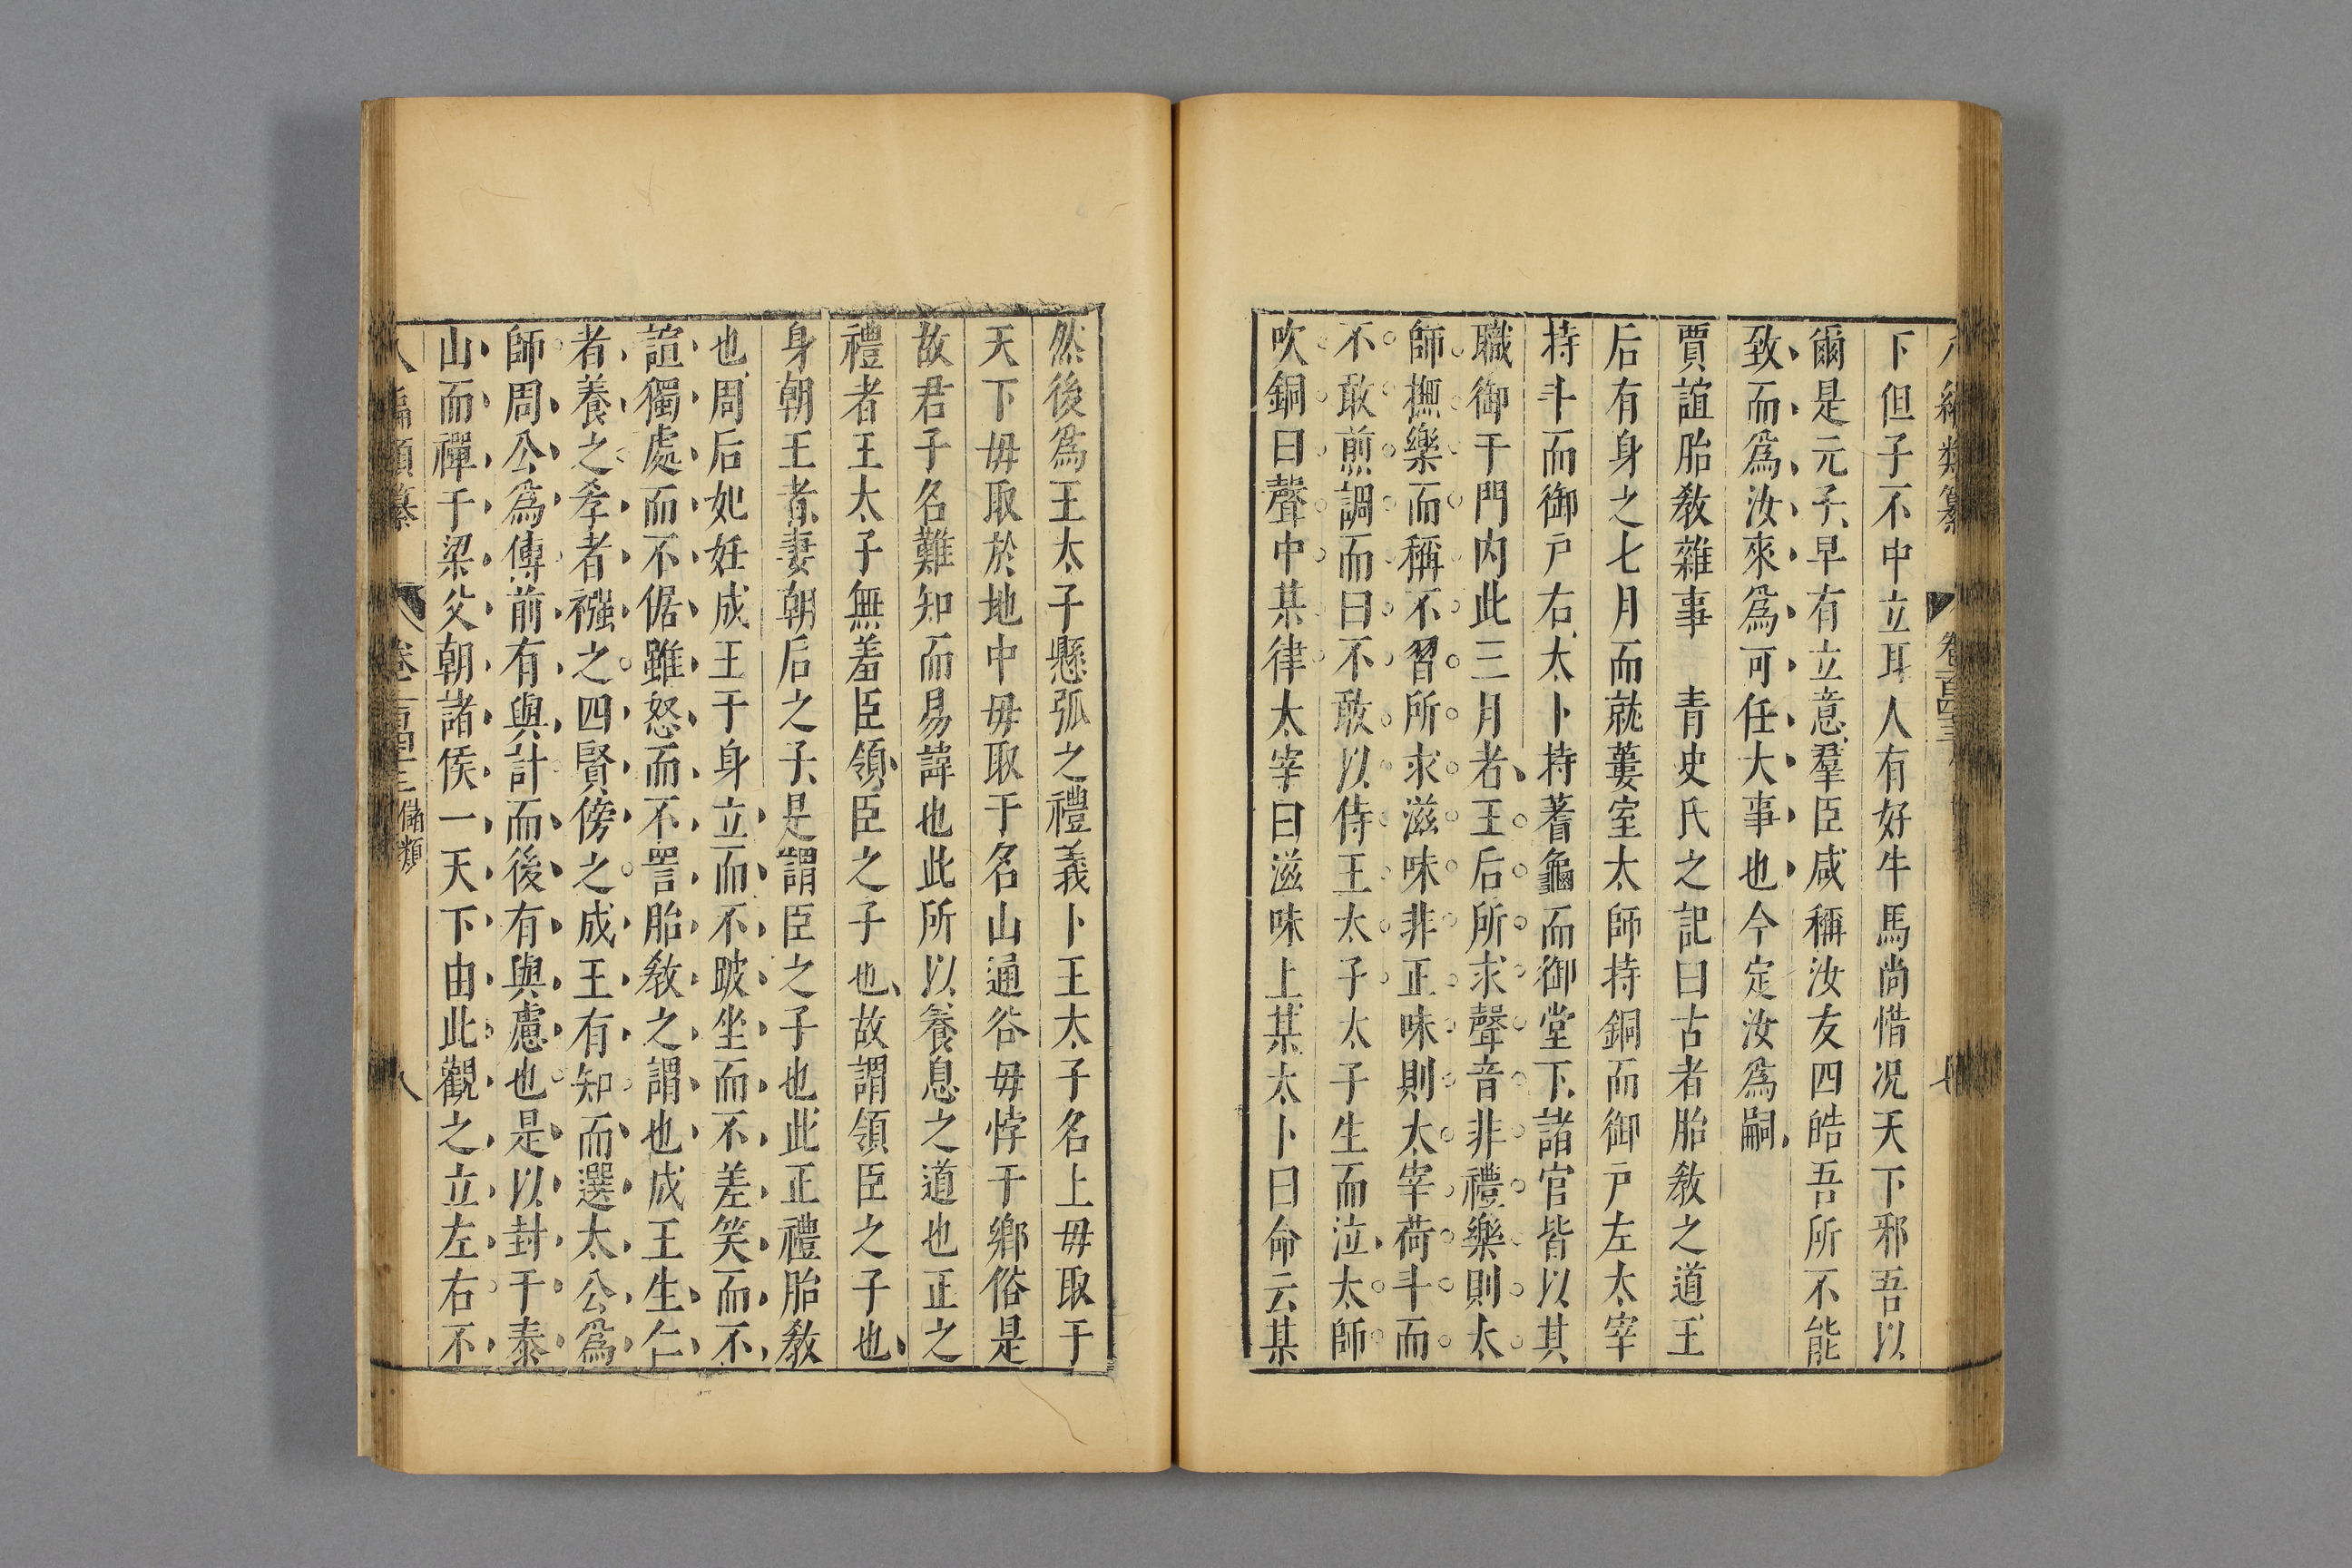 八編類纂 卷一百四十三 七
下但子不中立耳人有好牛馬尚惜况天下邪吾以
爾是元子早有立意羣臣咸稱汝友四皓吾所不能
致而爲汝來爲可任大事也今定汝爲嗣
賈誼胎敎雜事 青史氏之記曰古者胎敎之道王
后有身之七月而就蔞室太師持銅而御戸左太宰
持斗而御戸右太卜持蓍龜而御堂下諸官皆以其
職御于門内此三月者王后所求聲音非禮樂則太
師撫樂而稱不習所求滋味非正味則太宰荷斗而
不敢煎調而曰不敢以侍王太子太子生而泣太師
吹銅曰聲中某律太宰曰滋味上某太卜曰命云某
然後爲王太子懸弧之禮義卜王太子名上毋取于
天下毋取於地中毋取于名山通谷毋悖于鄉俗是
故君子名難知而易諱也此所以養息之道也正之
禮者王太子無羞臣領臣之子也故謂領臣之子也
身朝王者妻朝后之子是謂臣之子也此正禮胎敎
也周后妃妊成王于身立而不跛坐而不差笑而不
諠獨處而不倨雖怒而不詈胎敎之謂也成王生仁
者養之孝者襁之四賢傍之成王有知而選太公爲
師周公爲傅前有與計而後有與慮也是以封于泰
山而禪于梁父朝諸侯一天下由此觀之立左右不
八編類纂 卷一百四十三 儲類 八